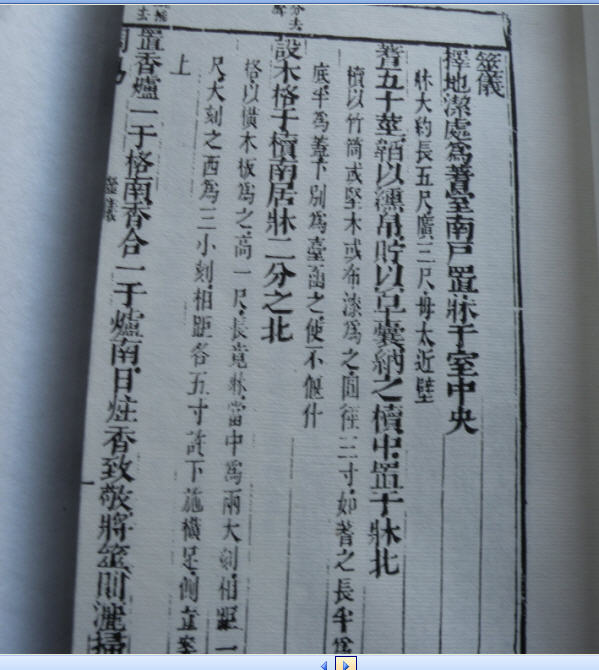 筮儀
擇地潔處爲蓍室南戸置牀于室中央
牀大約長五尺廣三尺毋太近壁
蓍五十莖韜以纁帛貯以皁囊納之櫝中置于牀北
櫝以竹筒或堅木或布漆爲之圓徑三寸如蓍之長半爲
底半爲蓋下別爲臺函之使不偃仆
設木格于櫝南居牀二分之北
格以橫木板爲之高一尺長竟牀當中爲兩大刻相距一
尺大刻之西爲三小刻相距各五寸許下施橫足側立案
上
置香爐一于格南香合一于爐南日炷香致敬將筮則灑掃